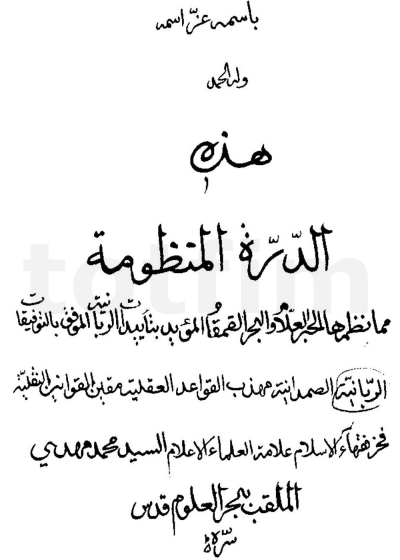 باسمه عزّ اسمه
وله الحمد
هذه
الدّرّة المنظومة
مما نظمها الحبر العلّام والبحر القمقام المؤيد بتأييدات الربانية الموفق بالتوفيقات
الربّانيّة الصمدانية مهذب القواعد العقلية مقنن القوانين النقليّة
فخر فقهاء الاسلام علامة العلماء الاعلام السيد محمد مهدي
الملقب ببحر العلوم قدس
سرّه
totfim